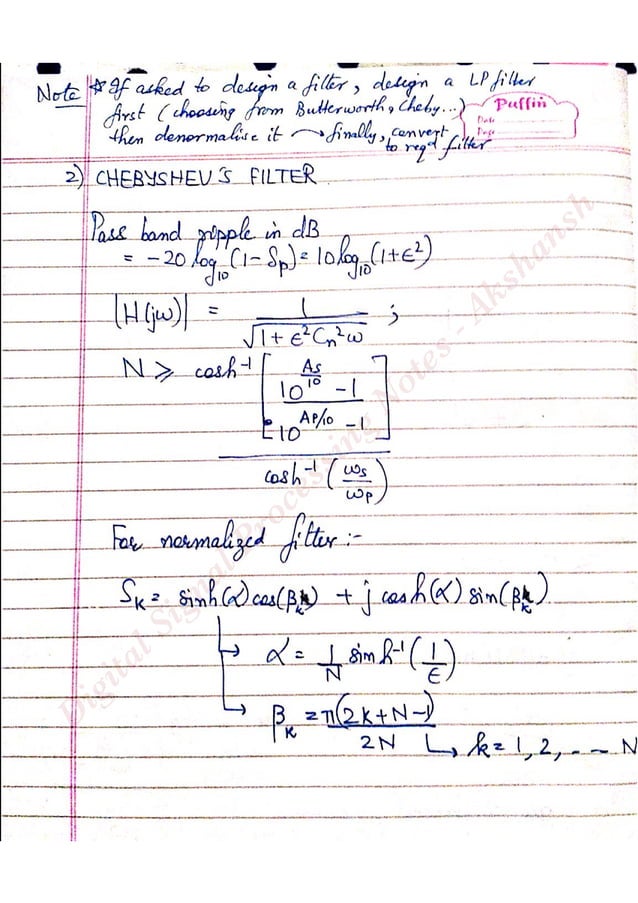 Note * If asked to design a filter, design a LP filter
first (choosing from Butterworth, Cheby...)
then denormalise it → finally, convert
to reqd filter
Puffin
Date
Page
2) CHEBYSHEV'S FILTER
Pass band ripple in dB
= -20 log₁₀(1-δp) = 10 log₁₀(1+ε²)
|H(jω)| = 1 / √(1 + ε²Cn²ω) ;
N ≥ cosh⁻¹ [ (10^(As/10) - 1) / (10^(Ap/10) - 1) ]
/ cosh⁻¹ (ωs/ωp)
For normalized filter :-
Sk = sinh(α) cos(βk) + j cosh(α) sin(βk)
→ α = 1/N sinh⁻¹ (1/ε)
→ βk = π(2k+N-1) / 2N → k = 1, 2, - - - N
Digital Signal Processing Notes - Akshansh